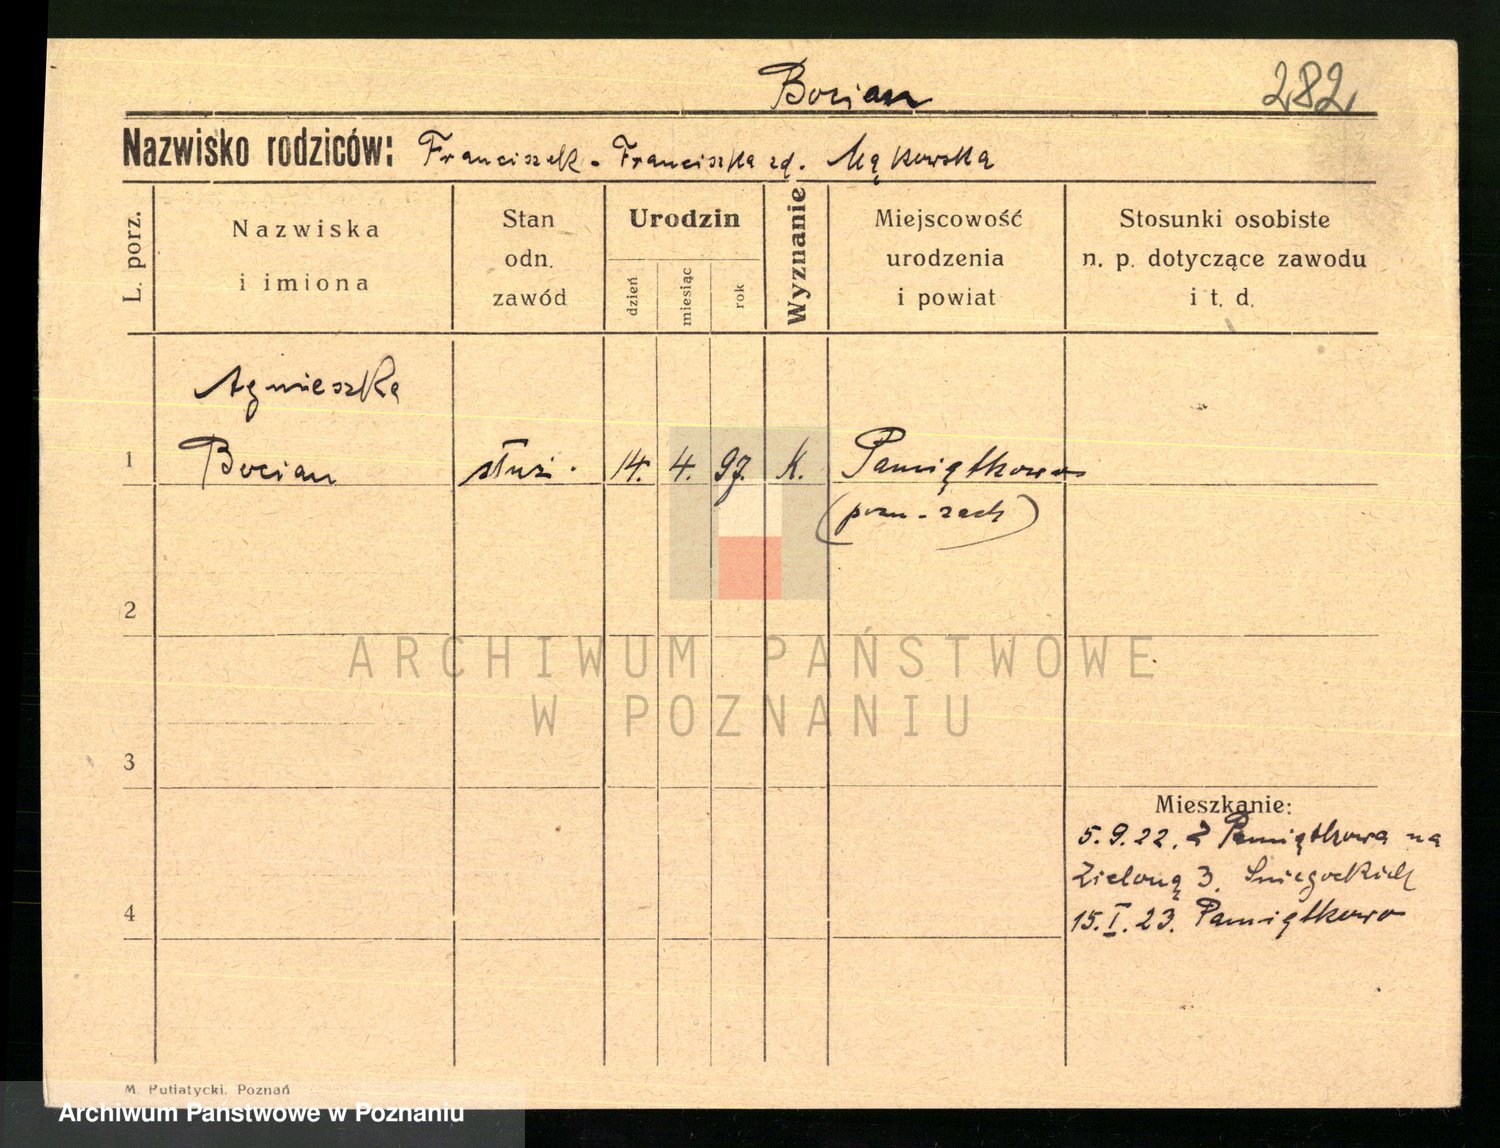 Bocian 282
Nazwisko rodziców: Franciszek - Franciszka zd. Mąkowska
L. porz.
Nazwiska
i imiona
Stan
odn.
zawód
Urodzin
dzień
miesiąc
rok
Wyznanie
Miejscowość
urodzenia
i powiat
Stosunki osobiste
n. p. dotyczące zawodu
i t. d.
Agnieszka
1 Bocian służ. 14. 4. 97. K. Pamiątkowo
(pozn - zach)
2
ARCHIWUM PAŃSTWOWE
W POZNANIU
3
Mieszkanie:
5.9.22. Z Pamiątkowa na
Zieloną 3.
4
15.I.23. Pamiątkowo
M. Putiatycki. Poznań
Archiwum Państwowe w Poznaniu